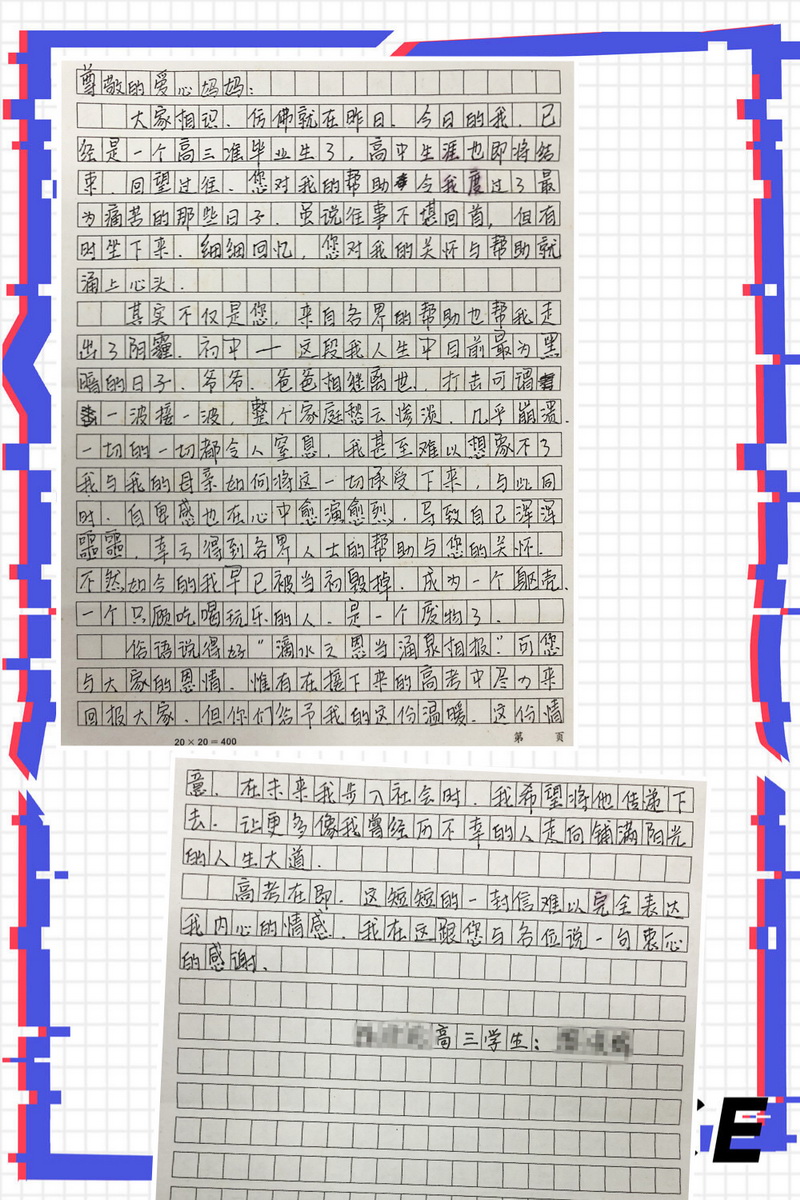 尊敬的爱心妈妈：
大家相识、仿佛就在昨日、今日的我、已
经是一个高三准毕业生了，高中生涯也即将结
束、回望过往、您对我的帮助令我度过了最
为痛苦的那些日子、虽说往事不堪回首，但有
时坐下来、细细回忆，您对我的关怀与帮助就
涌上心头.
其实不仅是您，来自各界的帮助也帮我走
出了阴霾、初中一这段我人生中目前最为黑
暗的日子、爷爷、爸爸相继离世，打击可谓
一波接一波，整个家庭愁云惨淡，几乎崩溃.
一切的一切都令人窒息，我甚至难以想象不了
我与我的母亲如何将这一切承受下来，与此同
时、自卑感也在心中愈演愈烈、导致自己浑浑
噩噩、幸亏得到各界人士的帮助与您的关怀.
不然如今的我早已被当初毁掉、成为一个躯壳.
一个只顾吃喝玩乐的人、是一个废物了.
俗语说得好“滴水之恩当涌泉相报”可您
与大家的恩情、惟有在接下来的高考中尽力来
回报大家、但你们给予我的这份温暖、这份情
20×20=400 第 页
意、在未来我步入社会时、我希望将他传递下
去.让更多像我曾经历不幸的人走向铺满阳光
的人生大道.
高考在即、这短短的一封信难以完全表达
我内心的情感、我在这跟您与各位说一句衷心
的感谢、
高三学生：
E